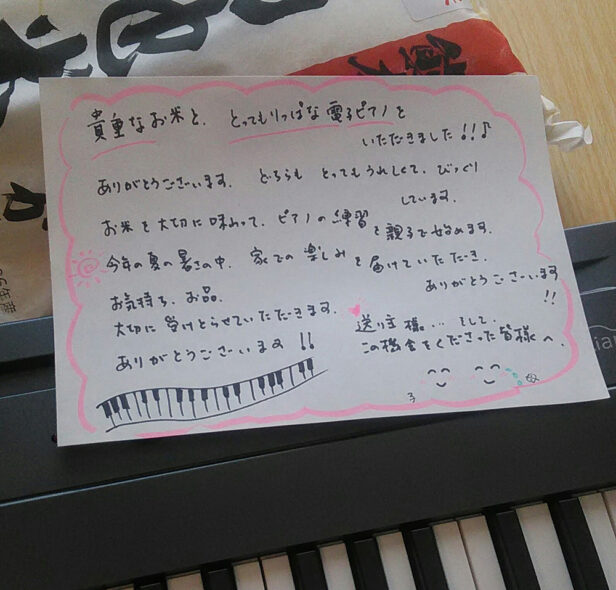 貴重なお米と、とってもりっぱな電子ピアノを
いただきました!!♪
ありがとうございます。 どちらも とってもうれしくて、びっくり
しています。
お米を大切に味わって、ピアノの練習を親子で始めます。
今年の夏の暑さの中、家での楽しみを届けていただき、
ありがとうございます
!!
お気持ち、お品、
大切に受けとらせていただきます。
ありがとうございます!!
送り主様… そして、
この機会をくださった皆様へ。